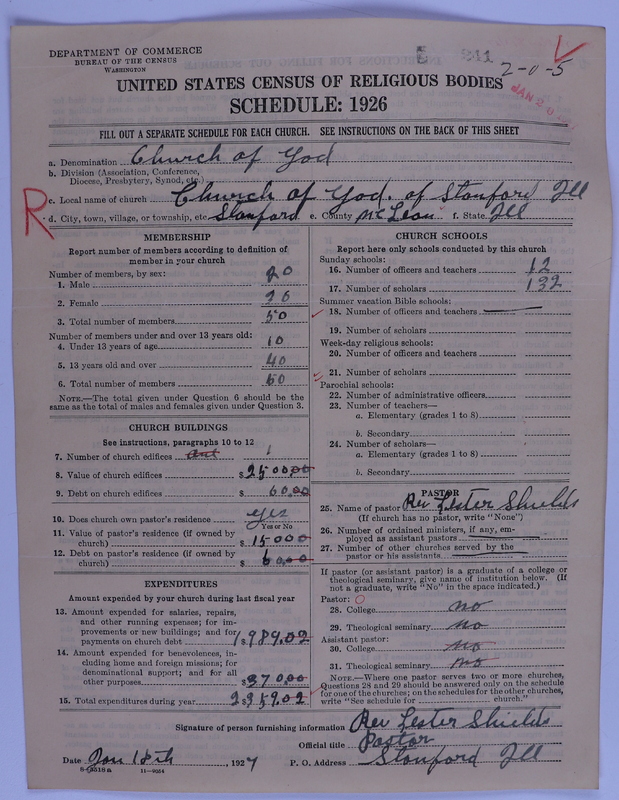 DEPARTMENT OF COMMERCE
BUREAU OF THE CENSUS
WASHINGTON
2-0-5
JAN 20
UNITED STATES CENSUS OF RELIGIOUS BODIES
SCHEDULE: 1926
FILL OUT A SEPARATE SCHEDULE FOR EACH CHURCH. SEE INSTRUCTIONS ON THE BACK OF THIS SHEET
a. Denomination Church of God
b. Division (Association, Conference,
Diocese, Presbytery, Synod, etc.)
c. Local name of church Church of God. of Stanford Ill
R
d. City, town, village, or township, etc. Stanford e. County McLean f. State Ill
MEMBERSHIP
Report number of members according to definition of
member in your church
Number of members, by sex:
1. Male
2. Female
3. Total number of members 50
Number of members under and over 13 years old:
4. Under 13 years of age 10
5. 13 years old and over 40
6. Total number of members 50
NOTE.—The total given under Question 6 should be
the same as the total of males and females given under Question 3.
CHURCH BUILDINGS
See instructions, paragraphs 10 to 12
7. Number of church edifices 1
8. Value of church edifices $ 2500.00
9. Debt on church edifices $ 60.00
10. Does church own pastor's residence yes
Yes or No
11. Value of pastor's residence (if owned by
church) $ 1500.0
12. Debt on pastor's residence (if owned by
church) $ 60.00
EXPENDITURES
Amount expended by your church during last fiscal year
13. Amount expended for salaries, repairs,
and other running expenses; for im-
provements or new buildings; and for
payments on church debt 1989.02
14. Amount expended for benevolences, in-
cluding home and foreign missions; for
denominational support; and for all
other purposes $ 370.00
15. Total expenditures during year 2359.02
CHURCH SCHOOLS
Report here only schools conducted by this church
Sunday schools:
16. Number of officers and teachers 12
17. Number of scholars 132
Summer vacation Bible schools:
18. Number of officers and teachers
19. Number of scholars
Week-day religious schools:
20. Number of officers and teachers
21. Number of scholars
Parochial schools:
22. Number of administrative officers
23. Number of teachers—
a. Elementary (grades 1 to 8)
b. Secondary
24. Number of scholars—
a. Elementary (grades 1 to 8)
b. Secondary
PASTOR
25. Name of pastor Rev Lester Shields
(If church has no pastor, write "None")
26. Number of ordained ministers, if any, em-
ployed as assistant pastors
27. Number of other churches served by the
pastor or his assistants
If pastor (or assistant pastor) is a graduate of a college or
theological seminary, give name of institution below. (If
not a graduate, write "No" in the space indicated.)
Pastor:
28. College no
29. Theological seminary no
Assistant pastor:
30. College no
31. Theological seminary no
NOTE.—Where one pastor serves two or more churches,
Questions 28 and 29 should be answered only on the schedule
for one of the churches; on the schedules for the other churches,
write "See schedule for church."
Signature of person furnishing information Rev Lester Shields
Official title Pastor
Date Jan 18th, 1927 P. O. Address Stanford Ill
8-5518a 11-9054